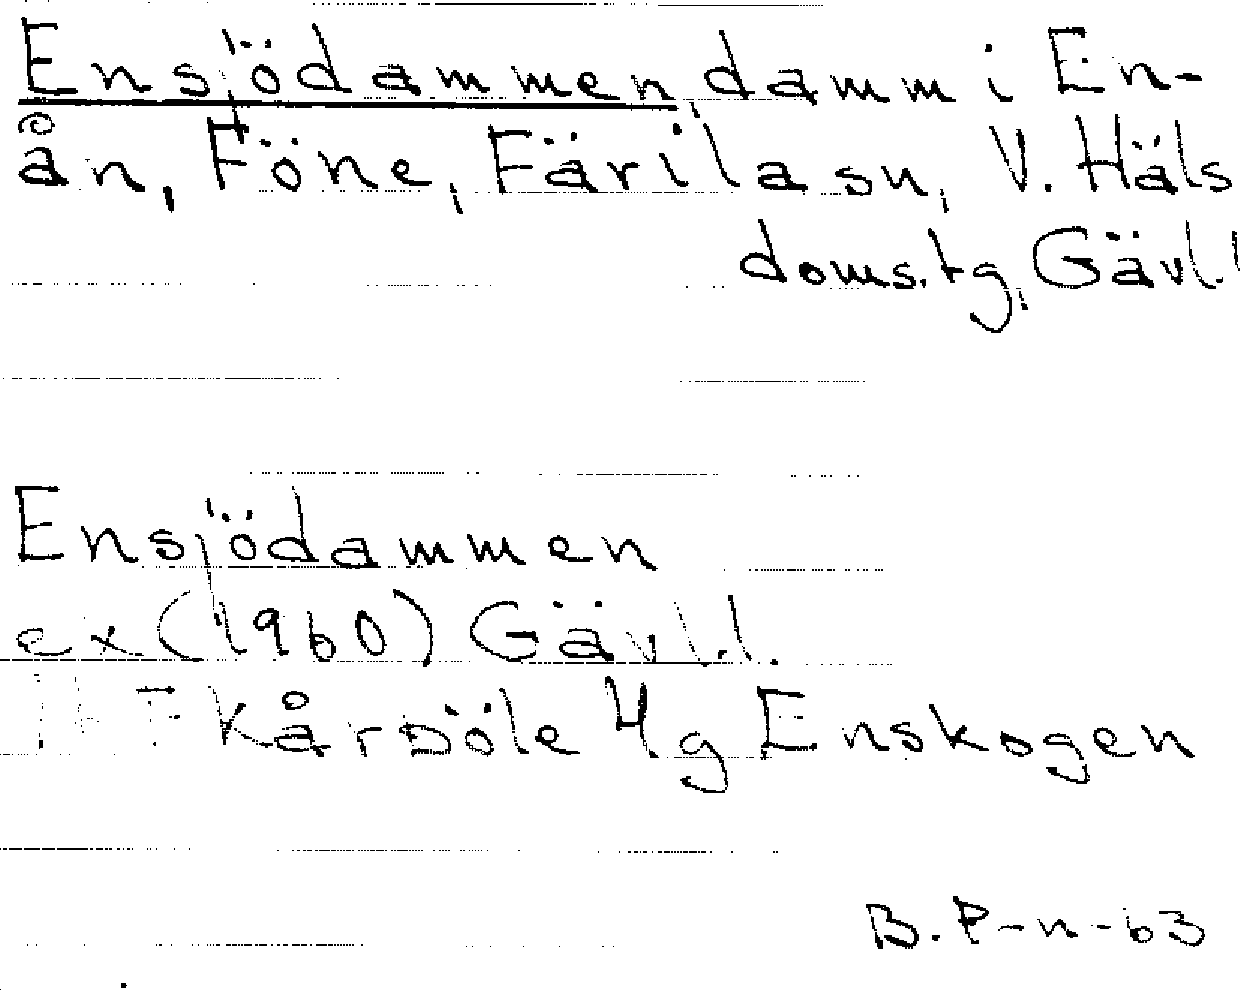 Ensjödammen, damm i En-
ån, Föne, Färila sn, V. Häls
doms.tg, Gävl.l
Ensjödammen
ex (1960) Gävl.l.
Kårsöle 4g Enskogen
B. P-n-63